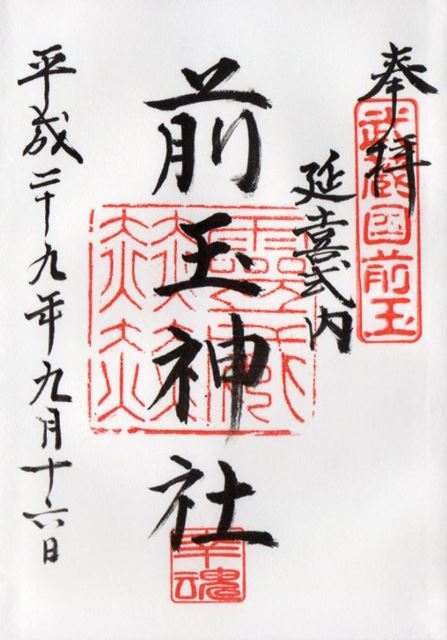 奉拝
武蔵国前玉
延喜式内
前玉神社
幸魂
平成二十九年九月十六日